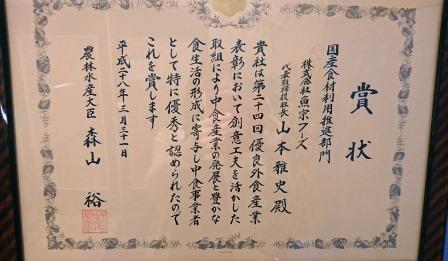 賞状
国産食材利用推進部門
株式会社魚宗フーズ
代表取締役社長 山本雅史殿
貴社は第二十四回優良外食産業
表彰において創意工夫を活かした
取組により中食産業の発展と豊かな
食生活の形成に寄与し中食事業者
として特に優秀と認められたので
これを賞します
平成二十八年三月三十一日
農林水産大臣 森山 裕